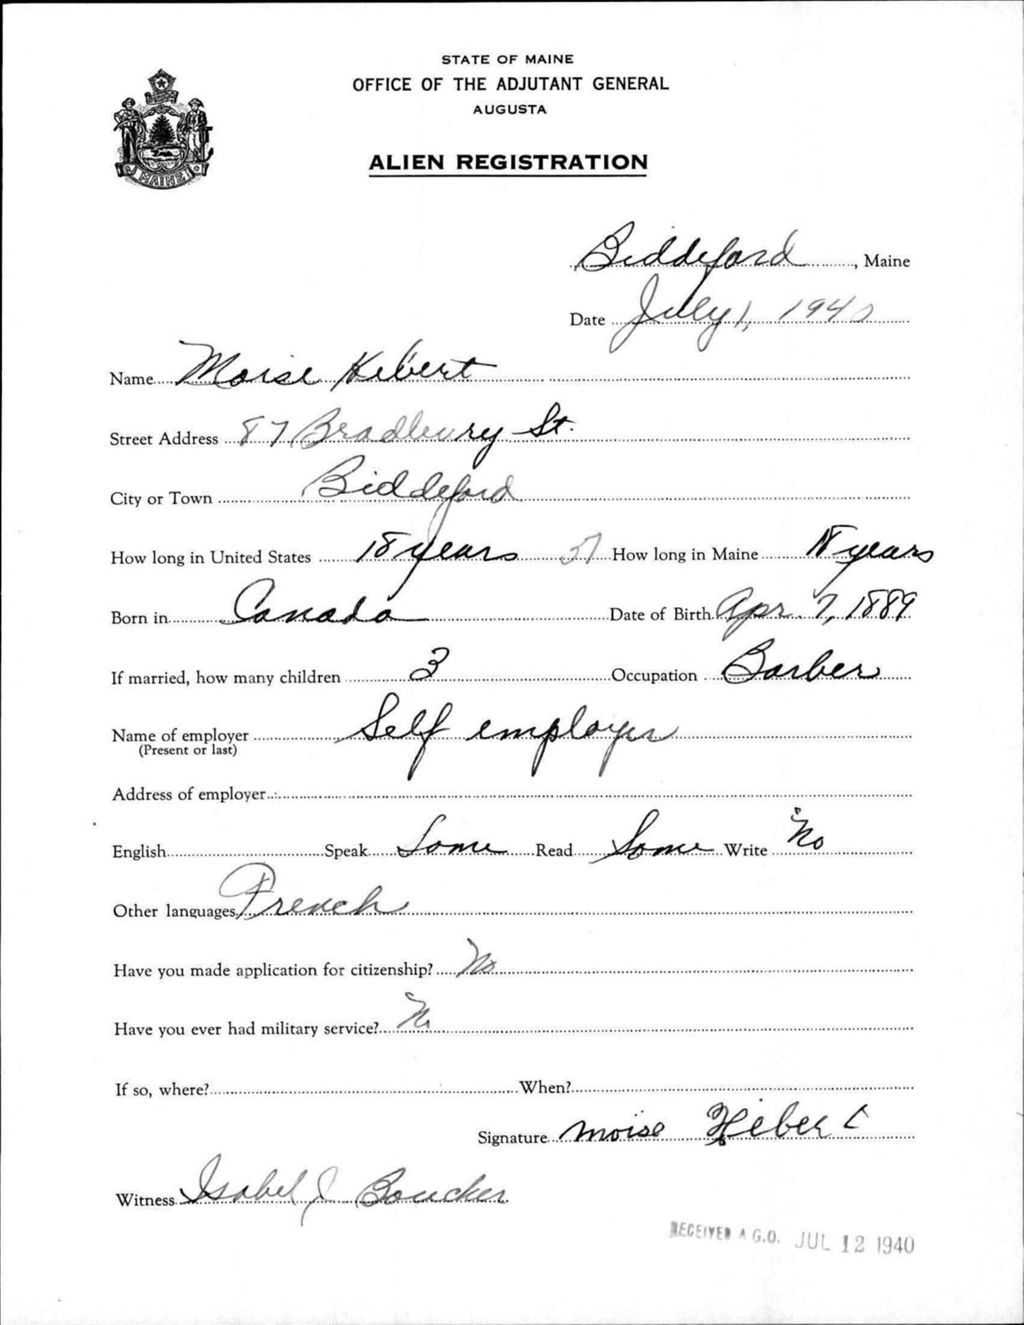 STATE OF MAINE
OFFICE OF THE ADJUTANT GENERAL
AUGUSTA
ALIEN REGISTRATION
MAINE
Biddeford, Maine
Date July 1, 1940
Name Moise Hebert
Street Address 87 Bradbury St.
City or Town Biddeford
How long in United States 18 years How long in Maine 18 years
Born in Canada Date of Birth Apr. 7, 1889
If married, how many children 3 Occupation Barber
Name of employer Self employer
(Present or last)
Address of employer
English Speak Some Read Some Write No
Other languages French
Have you made application for citizenship? No
Have you ever had military service? No
If so, where? When?
Signature moise Hebert
Witness Isabel J Boucher
RECEIVED A.G.O. JUL 12 1940